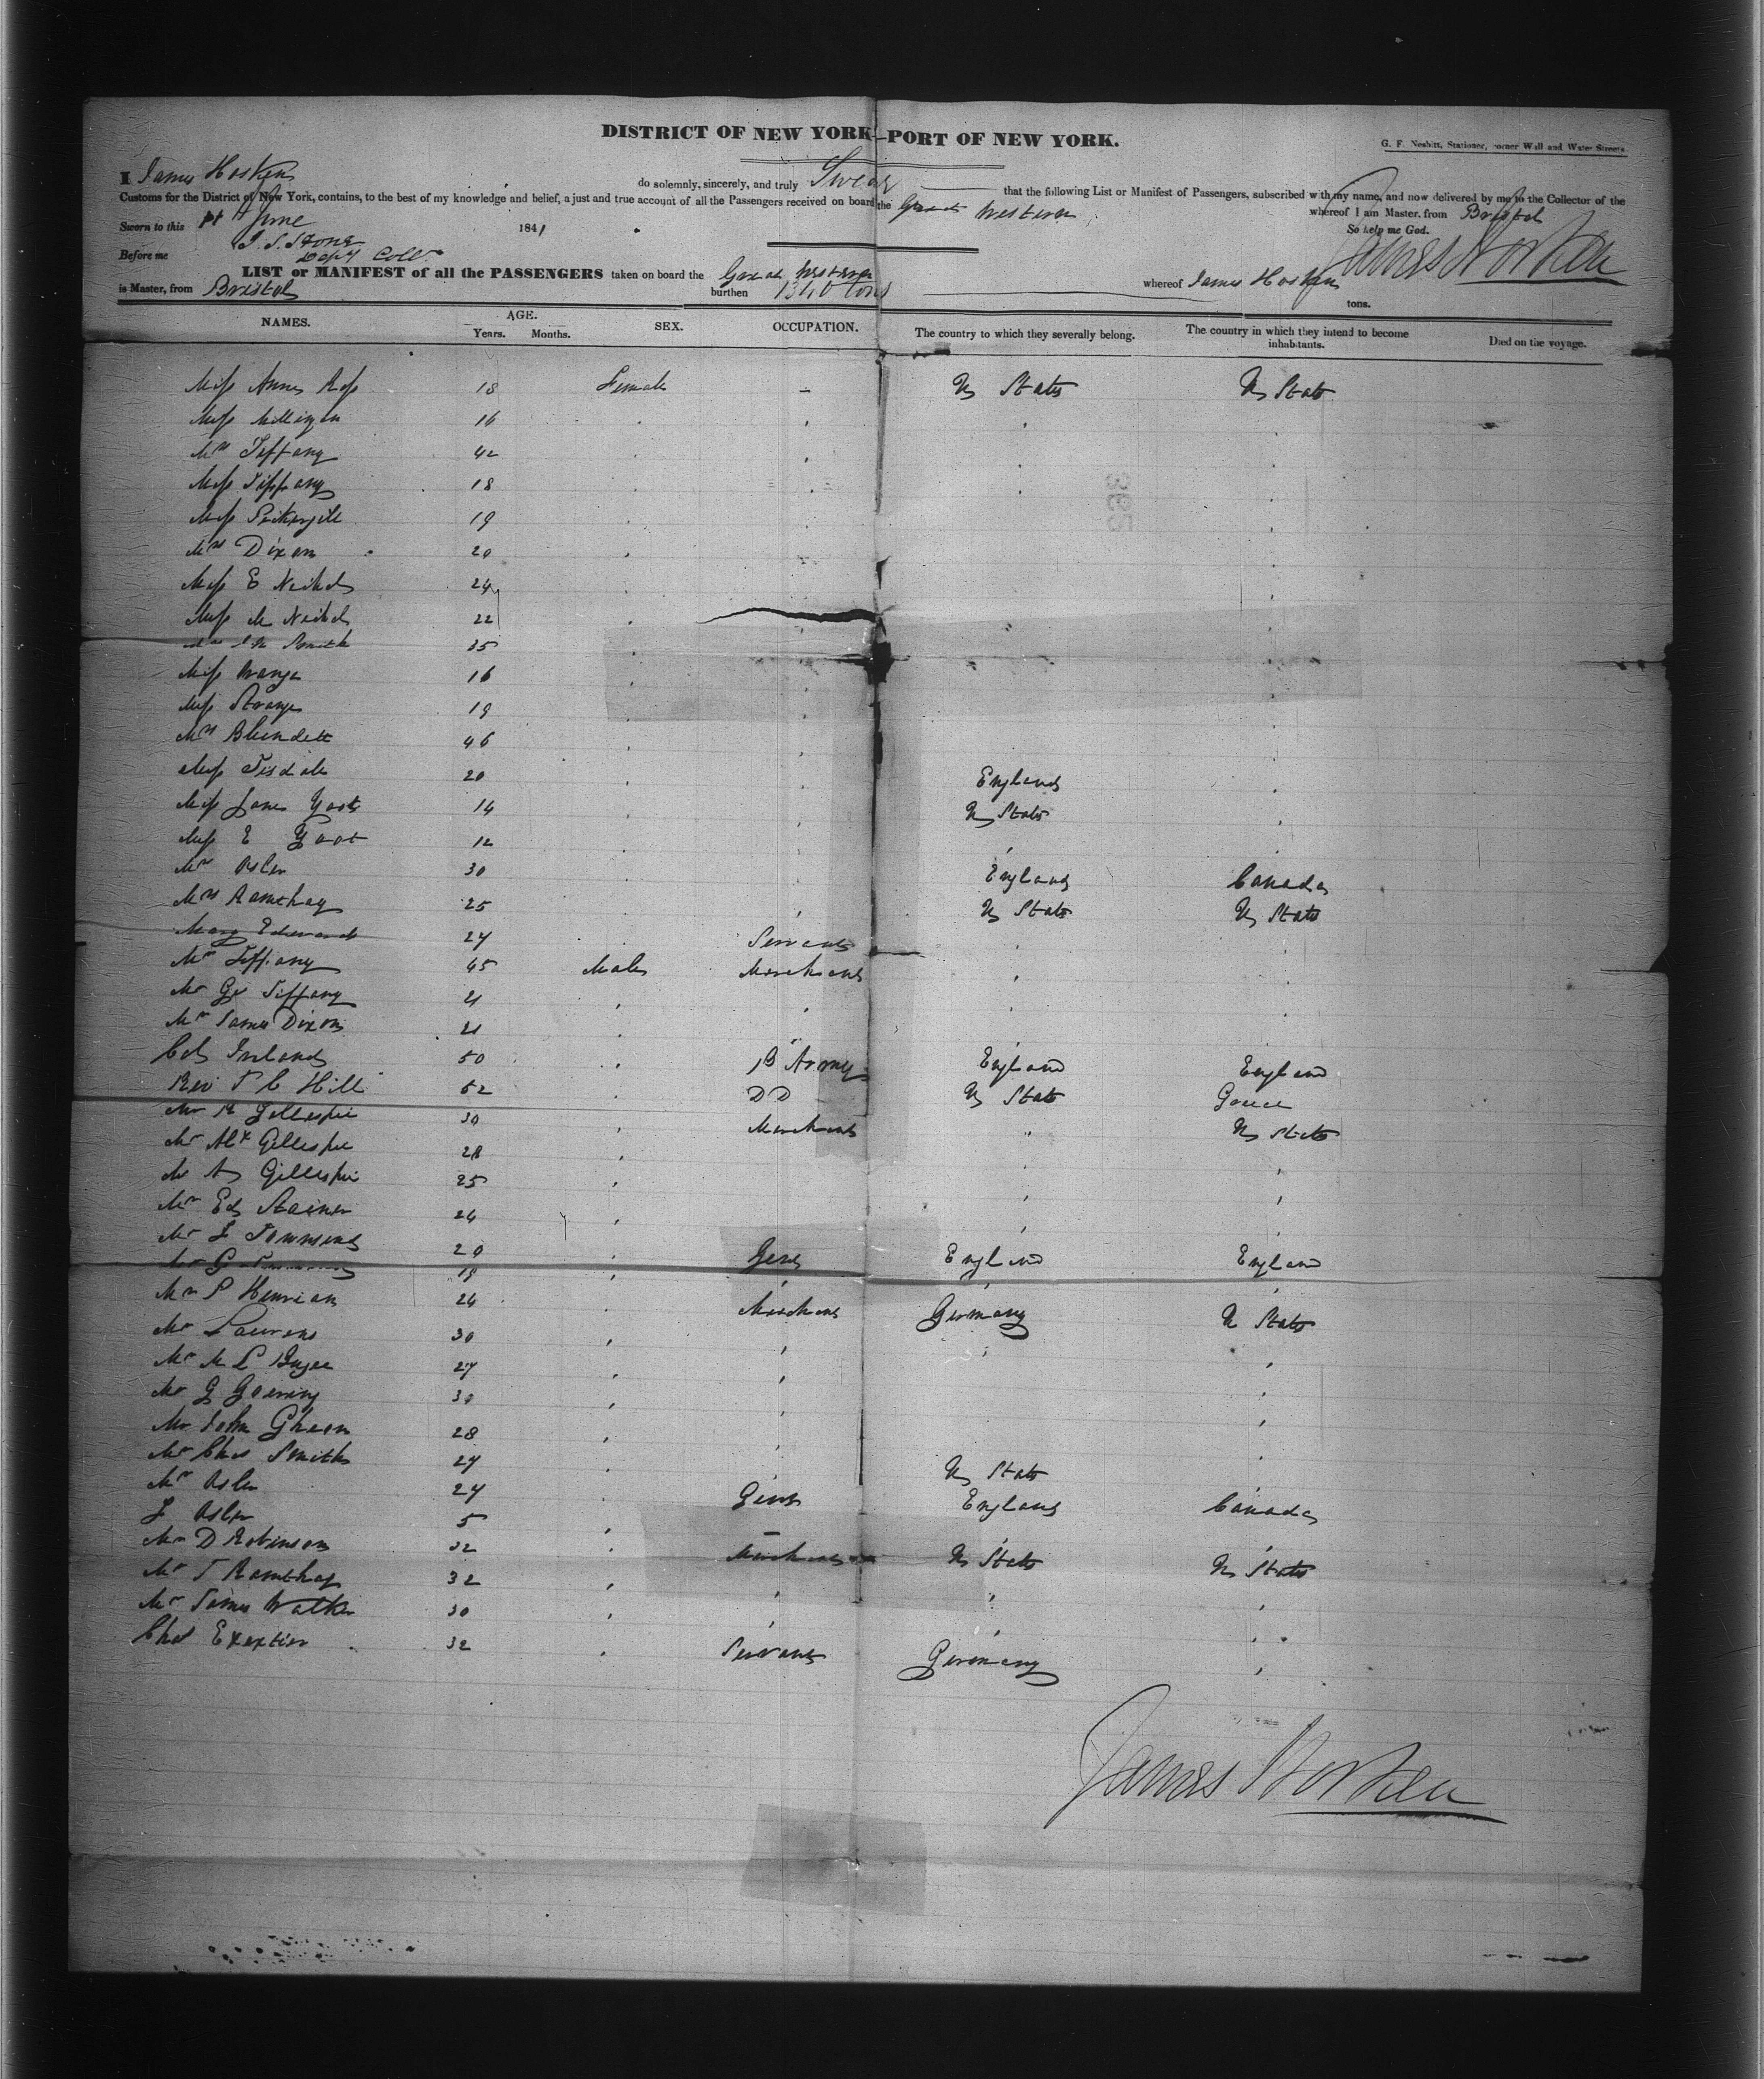 DISTRICT OF NEW YORK—PORT OF NEW YORK.
G. F. Nesbitt, Stationer, corner Wall and Water Streets
I James Hosken do solemnly, sincerely, and truly Swear that the following List or Manifest of Passengers, subscribed with my name, and now delivered by me to the Collector of the
Customs for the District of New York, contains, to the best of my knowledge and belief, a just and true account of all the Passengers received on board the Great Western whereof I am Master, from Bristol
Sworn to this 1st June 1841 So help me God.
Before me J. S. Stone Depy Coll James Hosken
LIST or MANIFEST of all the PASSENGERS taken on board the Great Western whereof James Hosken
is Master, from Bristol burthen 1340 tons tons.
NAMES. AGE. Years. Months. SEX. OCCUPATION. The country to which they severally belong. The country in which they intend to become inhabitants. Died on the voyage.
Miss Anna Ross 18 Female - U States U States
Miss Milligan 16
Mrs Tiffany 42
Miss Tiffany 18
Miss Pickersgill 19
Mrs Dixon 20
Miss E Nichols 24
Miss M Nichols 22
Smith 35
Miss 16
Miss Strange 19
Mrs Blundell 46
Miss Tisdale 20 England
Miss Jane Yoot 14 U States
Miss E Yoot 12
Mrs Osler 30 England Canada
Mrs Ramthay 25 U States U States
Mary Edwards 27 Servant
Mr Tiffany 45 Male Merchant
Mr Geo Tiffany 21
Mr James Dixon 21
Col Ireland 50 B Army England England
Rev J C Hill 52 DD U States Greece
Mr R Gillespie 30 Merchant U States
Mr Alx Gillespie 28
Mr A Gillespie 25
Mr Ed Stainer 24
Mr J Townsend 20 Gent England England
Mr G 19
Mr P Henrican 24 Merchant Germany U States
Mr Laurens 30
Mr M L 27
Mr G Goering 30
Mr John Gheen 28
Mr Chas Smith 27 U States
Mr Osler 27 Gent England Canada
J Osler 5
Mr D Robinson 32 Merchant U States U States
Mr J Ramthay 32
Mr James Walker 30
Chas 32 Servant Germany
James Hosken